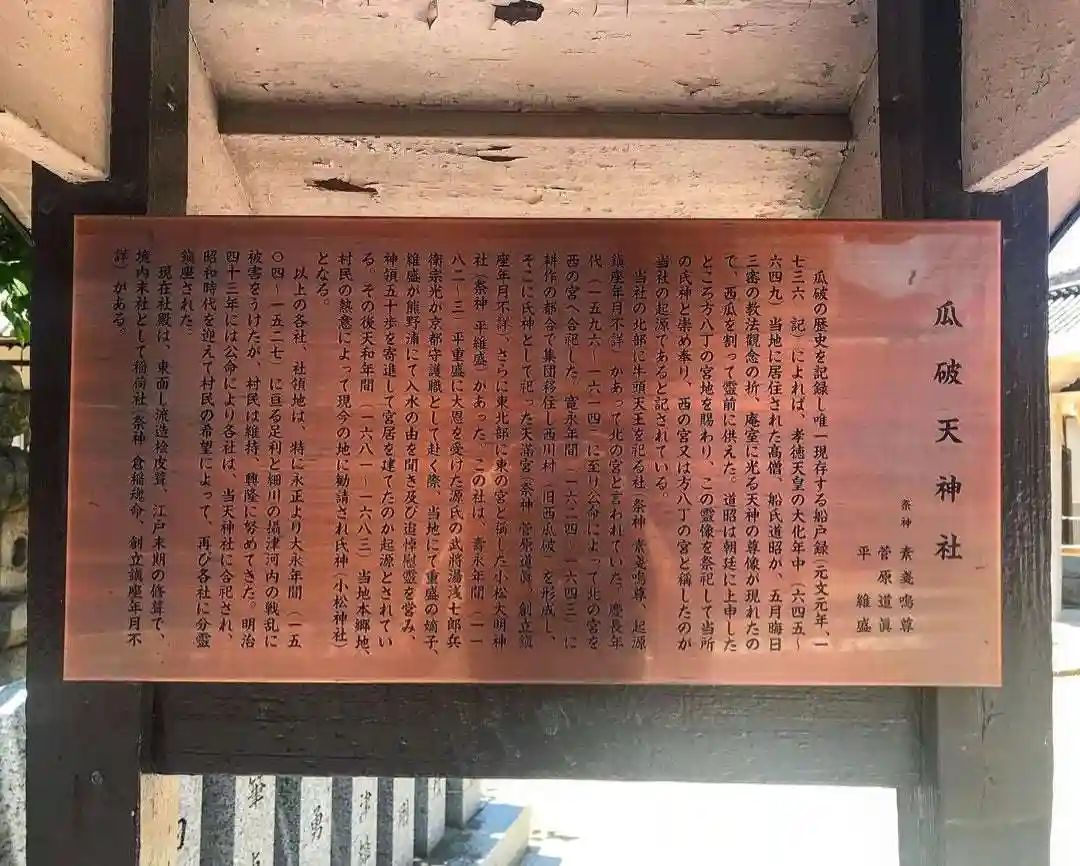 瓜破天神社
祭神 素戔鳴尊
菅原道眞
平維盛
瓜破の歴史を記録し唯一現存する船戸録(元文元年、一
七三六 記)によれば、孝徳天皇の大化年中(六四五~
六四九)当地に居住された高僧、船氏道昭が、五月晦日
三審の教法觀念の折、庵室に光る天神の尊像が現れたの
で、西瓜を割って霊前に供えた。道昭は朝廷に上申した
ところ方八丁の宮地を賜わり、この霊像を祭祀して当所
の氏神と崇め奉り、西の宮又は方八丁の宮と稱したのが
当社の起源であると記されている。
当社の北部に牛頭天王を祀る社(祭神 素戔鳴尊、起源
鎮座年月不詳)があって北の宮と言われていた。慶長年
代(一五九六~一六一四)に至り公命によって北の宮を
西の宮へ合祀した。寛永年間(一六二四~一六四三)に
耕作の都合で集団移住し西川村(旧西瓜破)を形成し、
そこに氏神として祀った天満宮(祭神 菅原道眞 創立鎮
座年月不詳、さらに東北部に東の宮と稱した小松大明神
社(祭神 平維盛)があった、この社は、壽永年間(一一
八二~三)平重盛に大恩を受けた源氏の武將湯浅七郎兵
衛宗光が京都守護職として赴く際、当地にて重盛の嫡子、
維盛が熊野浦にて入水の由を聞き及び追悼慰霊を営み、
神領五十歩を寄進して宮居を建てたのが起源とされてい
る。その後天和年間(一六八一~一六八三)当地本郷地、
村民の熱意によって現今の地に勧請され氏神(小松神社)
となる。
以上の各社、社領地は、特に永正より大永年間(一五
〇四~一五二七)に亘る足利と細川の攝津河内の戦乱に
被害をうけたが、村民は維持、興隆に努めてきた。明治
四十三年には公命により各社は、当天神社に合祀され、
昭和時代を迎えて村民の希望によって、再び各社に分霊
鎮座された。
現在社殿は、東面し流造桧皮葺、江戸末期の修葺で、
境内末社として稲荷社(祭神 倉稲魂命、創立鎮座年月不
詳)がある。
勇